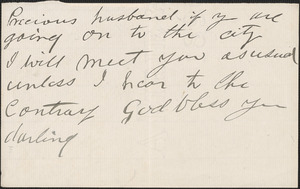 Precious husband if y are
going on to the city
I will meet you as usual
unless I hear to the
Contray God bless you
darling